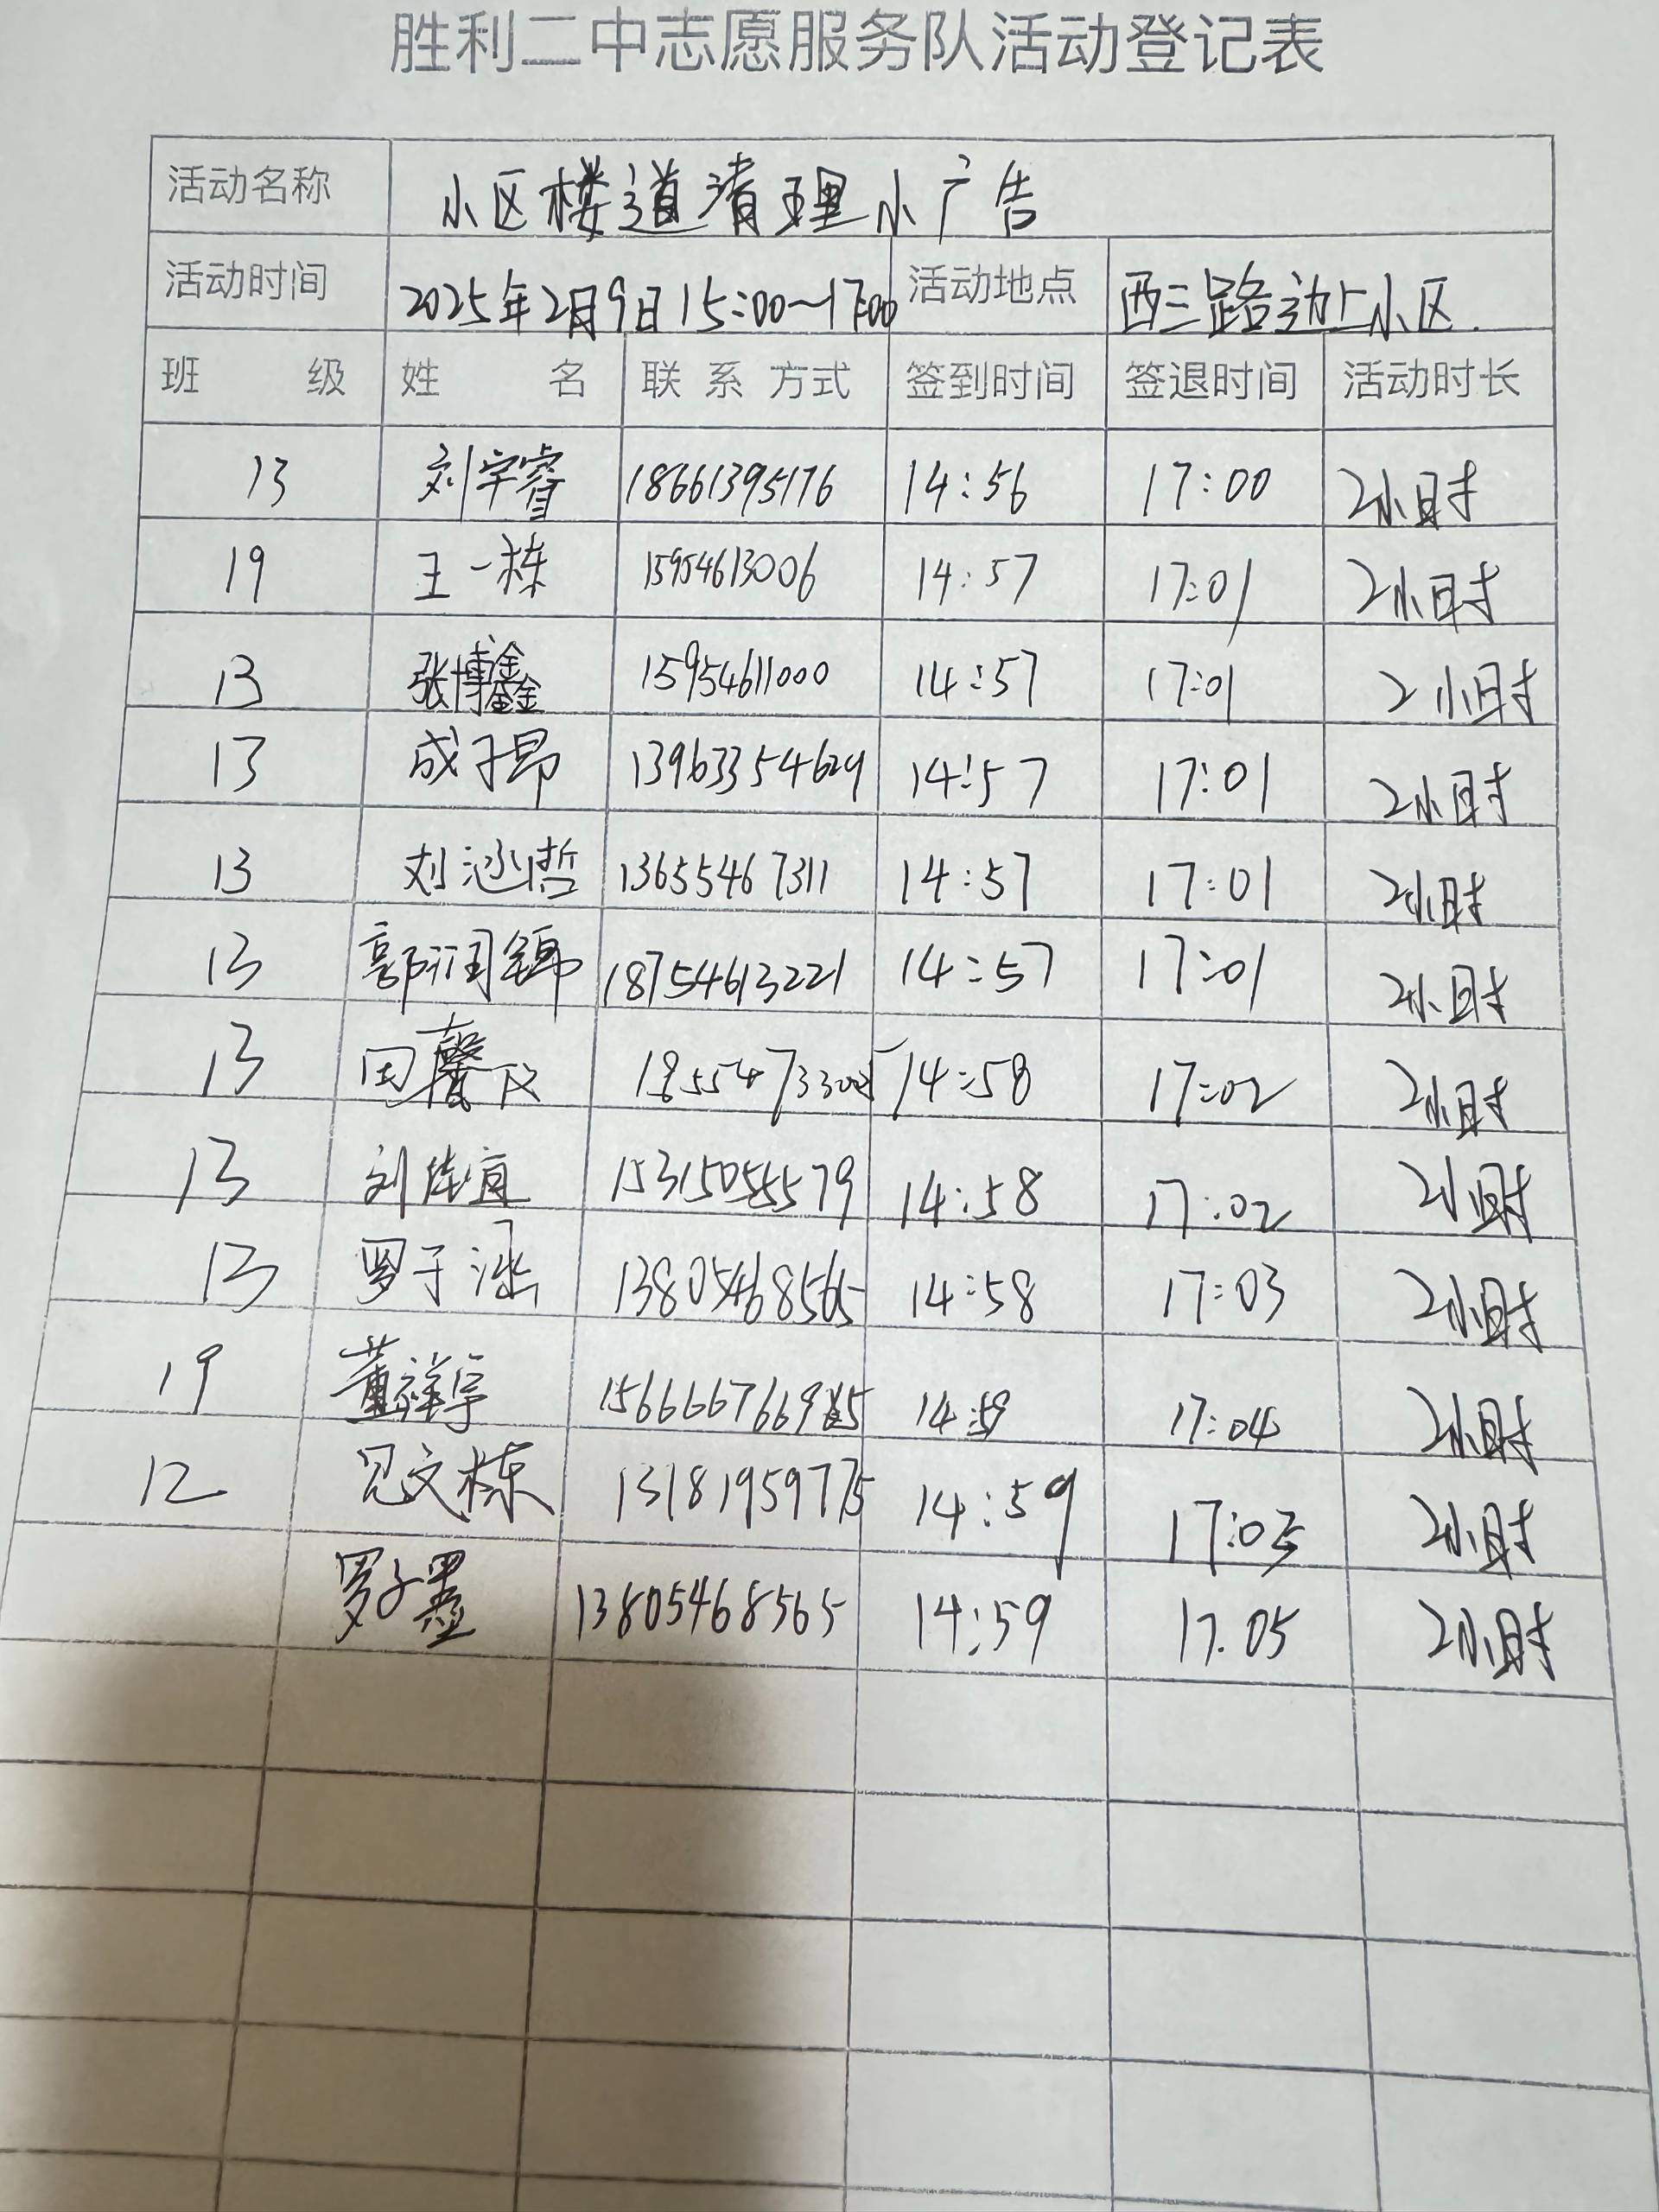 胜利二中志愿服务队活动登记表
活动名称 小区楼道清理小广告
活动时间 2025年2月9日15:00~17:00 活动地点 西三路边上小区
班级 姓名 联系方式 签到时间 签退时间 活动时长
13 刘宇睿 18661395176 14:56 17:00 2小时
19 王一栋 15954613006 14:57 17:01 2小时
13 张博鑫 15954611000 14:57 17:01 2小时
13 成子昂 13963354629 14:57 17:01 2小时
13 刘涵哲 13655467311 14:57 17:01 2小时
13 郭润锦 18754613221 14:57 17:01 2小时
13 田馨 14:58 17:02 2小时
13 刘佳宜 14:58 17:02 2小时
13 罗于涵 13805468565 14:58 17:03 2小时
19 董祥宇 14:59 17:04 2小时
12 文栋 14:59 17:05 2小时
罗子墨 13805468565 14:59 17.05 2小时